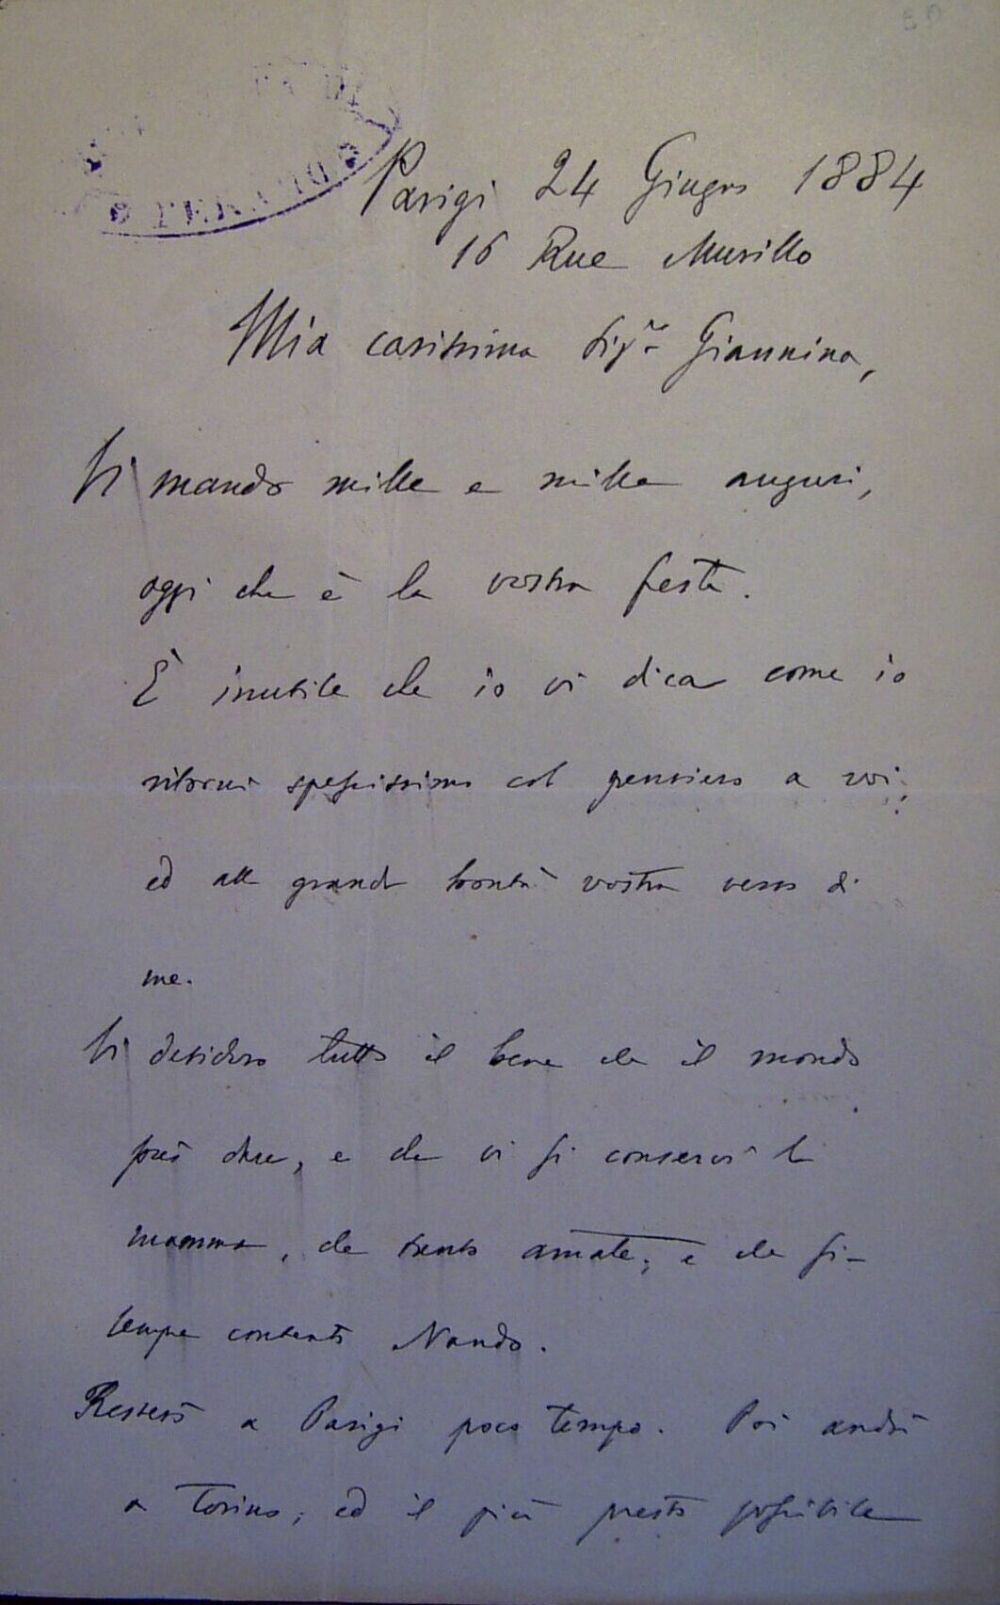 Parigi 24 Giugno 1884
16 Rue Murillo
Mia carissima Sigra Giannina,
Vi mando mille e mille auguri,
oggi che è la vostra festa.
È inutile che io vi dica come io
ritorni spessissimo col pensiero a voi;
ed alla grande bontà vostra verso di
me.
Vi desidero tutto il bene che il mondo
può dare, e che vi si conservi la
mamma, che tanto amate; e che sia
sempre contento Nando.
Resterò a Parigi poco tempo. Poi andrò
a Torino; ed il più presto possibile